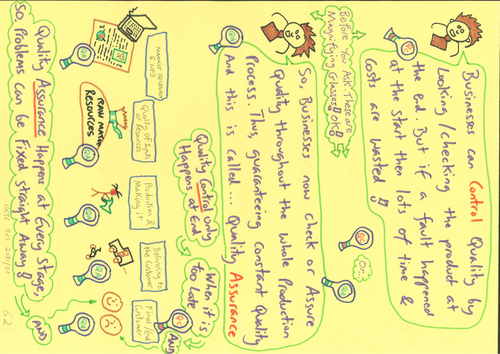 Businesses can Control Quality by
Looking/checking the product at
the end. But if a fault happened
at the start then lots of time &
costs are wasted !!
Before You Ask, These are
Magnifying Glasses!! Ok!!
So, Businesses now check or Assure
Quality throughout the Whole Production
Process. Thus, guaranteeing constant Quality
And this is called... Quality Assurance
Quality Control only
Happens at End
When it is
too late
Quality of Inputs
or Resources
Production &
Making it
Delivering to
the Customer
Final / End
Customer
RAW MATERIAL
RESOURCES
AND
Quality Assurance Happens at Every Stage,
So, Problems can be Fixed straight Away!!
AND
62